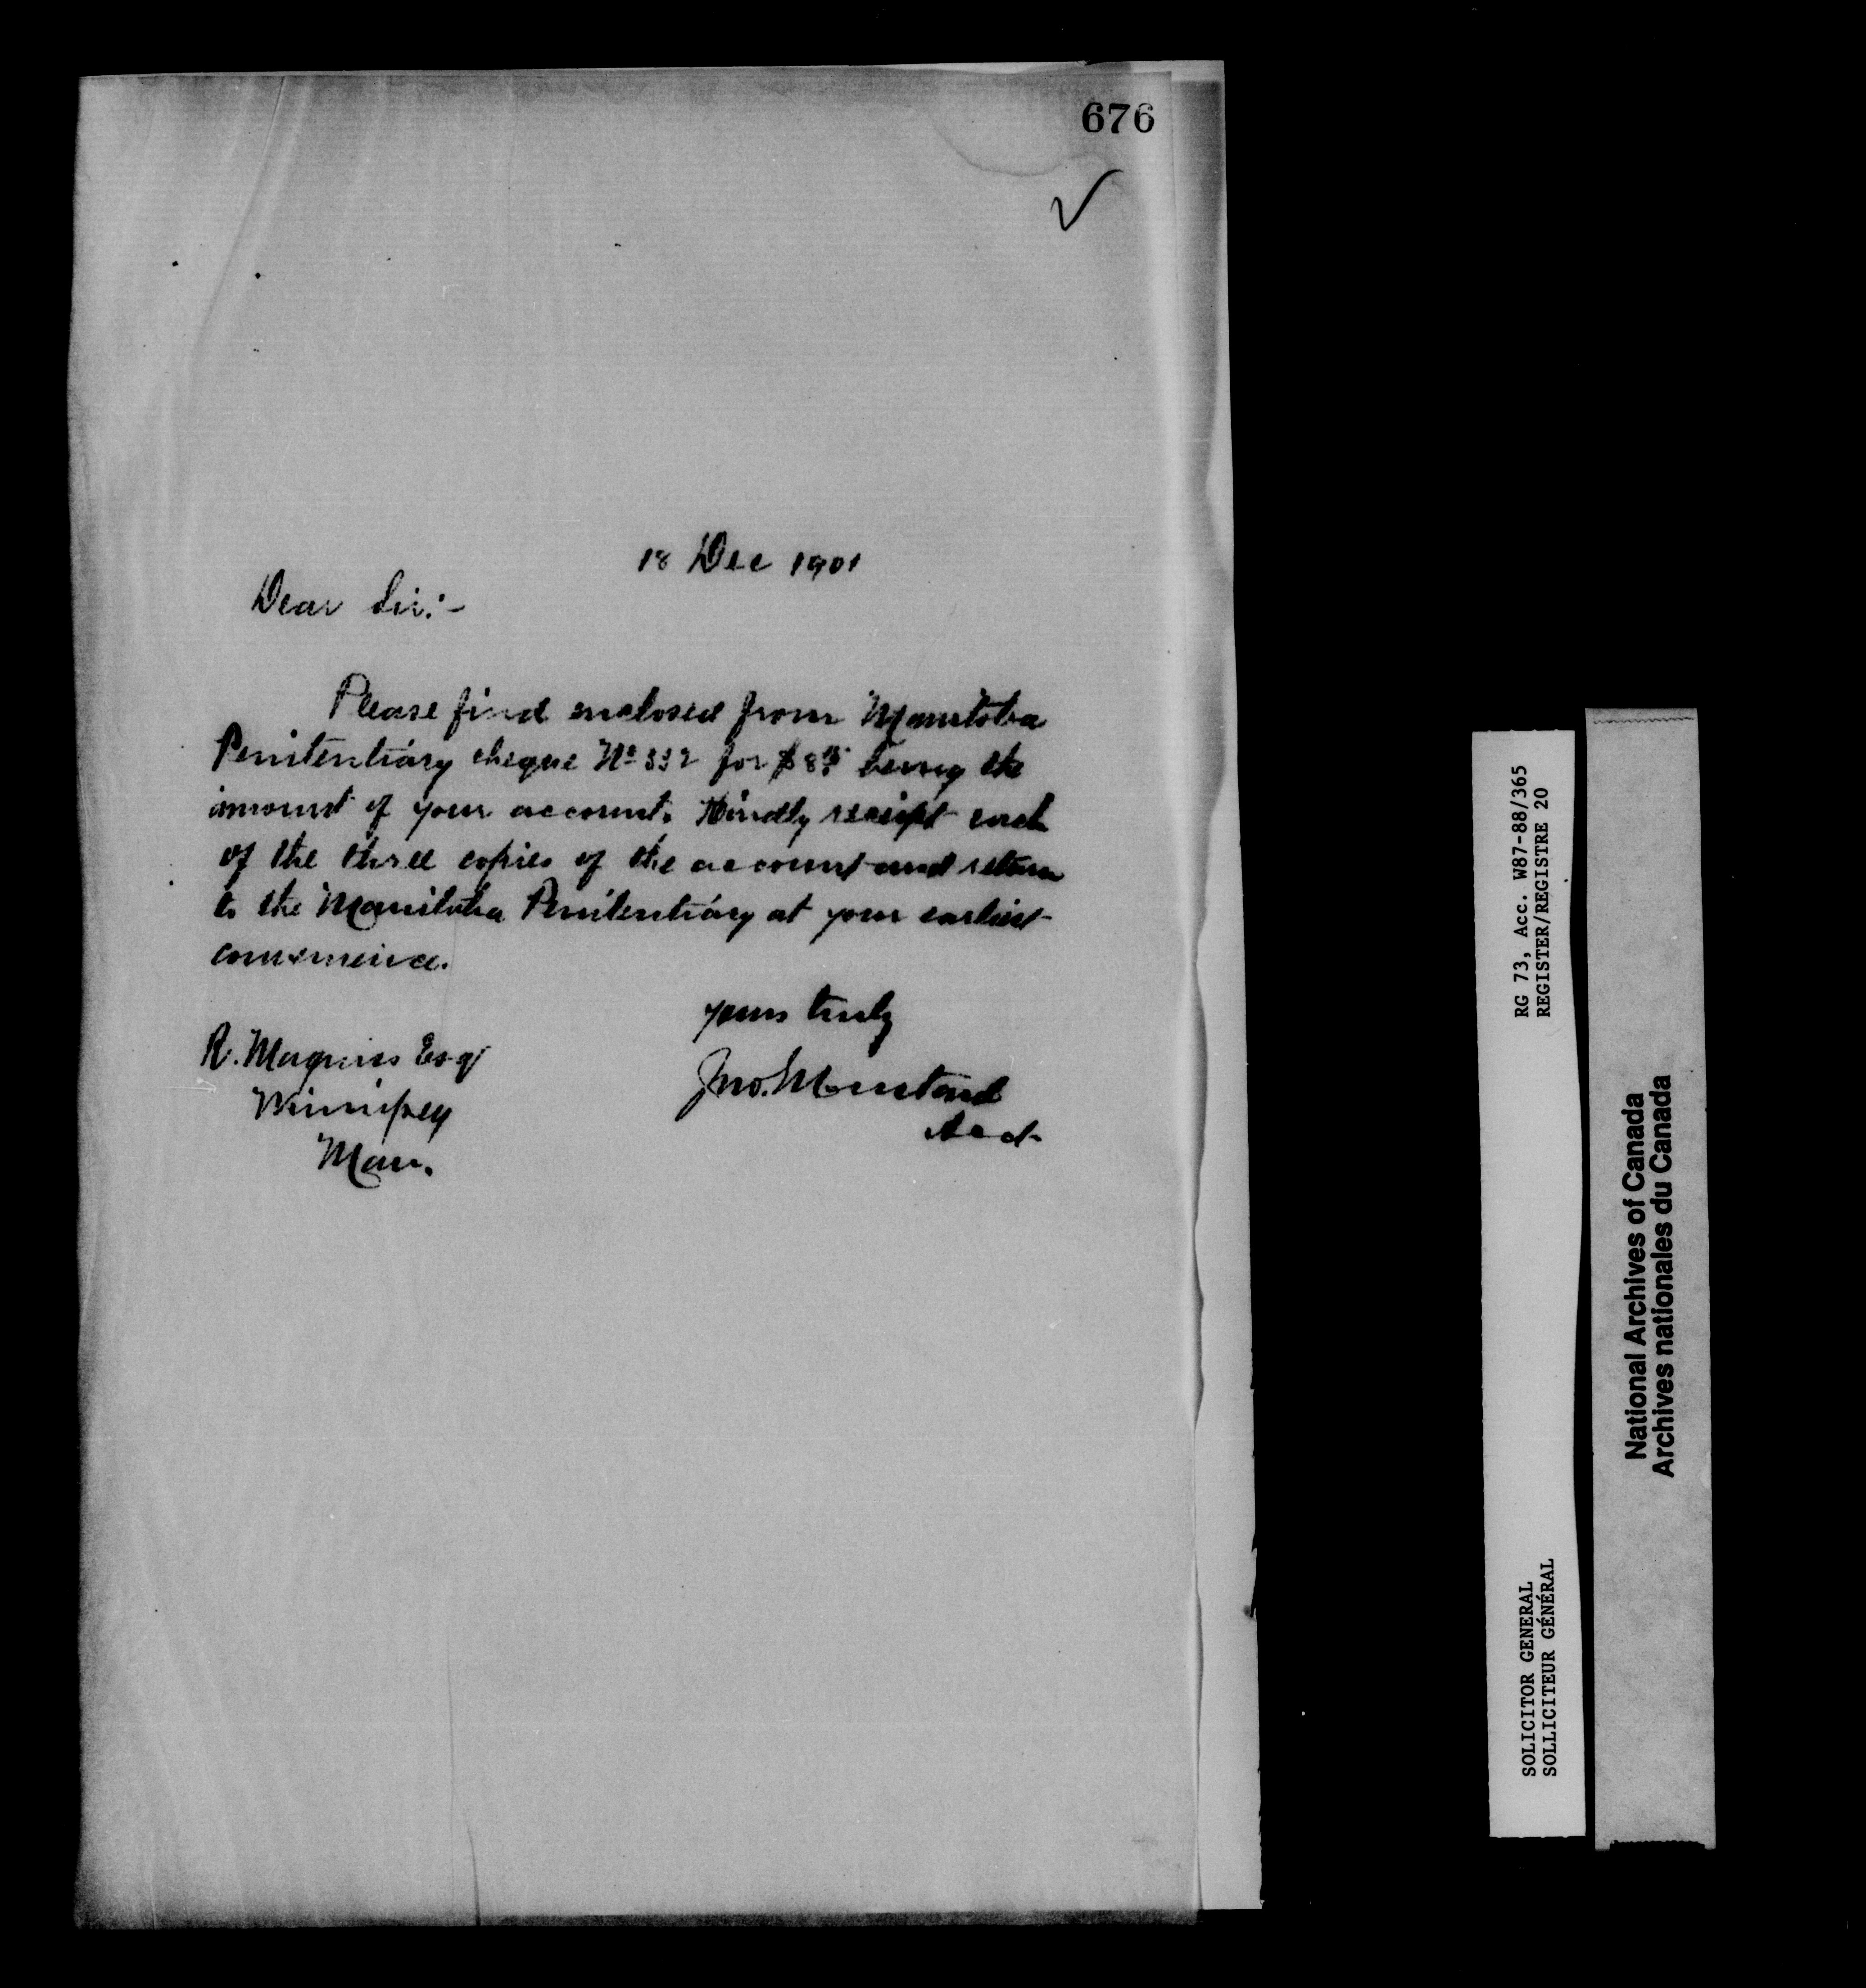 676
18 Dec 1901
Dear Sir:-
Please find enclosed from Manitoba
Penitentiary cheque No 332 for $8 being the
amount of your account. Kindly receipt each
of the three copies of the account and return
to the Manitoba Penitentiary at your earliest
convenience.
yours truly
Jno. Mustard
Acct
R. Magness Esq
Winnipeg
Man.
RG 73, Acc. W87-88/365
REGISTER/REGISTRE 20
SOLICITOR GENERAL
SOLLICITEUR GÉNÉRAL
National Archives of Canada
Archives nationales du Canada